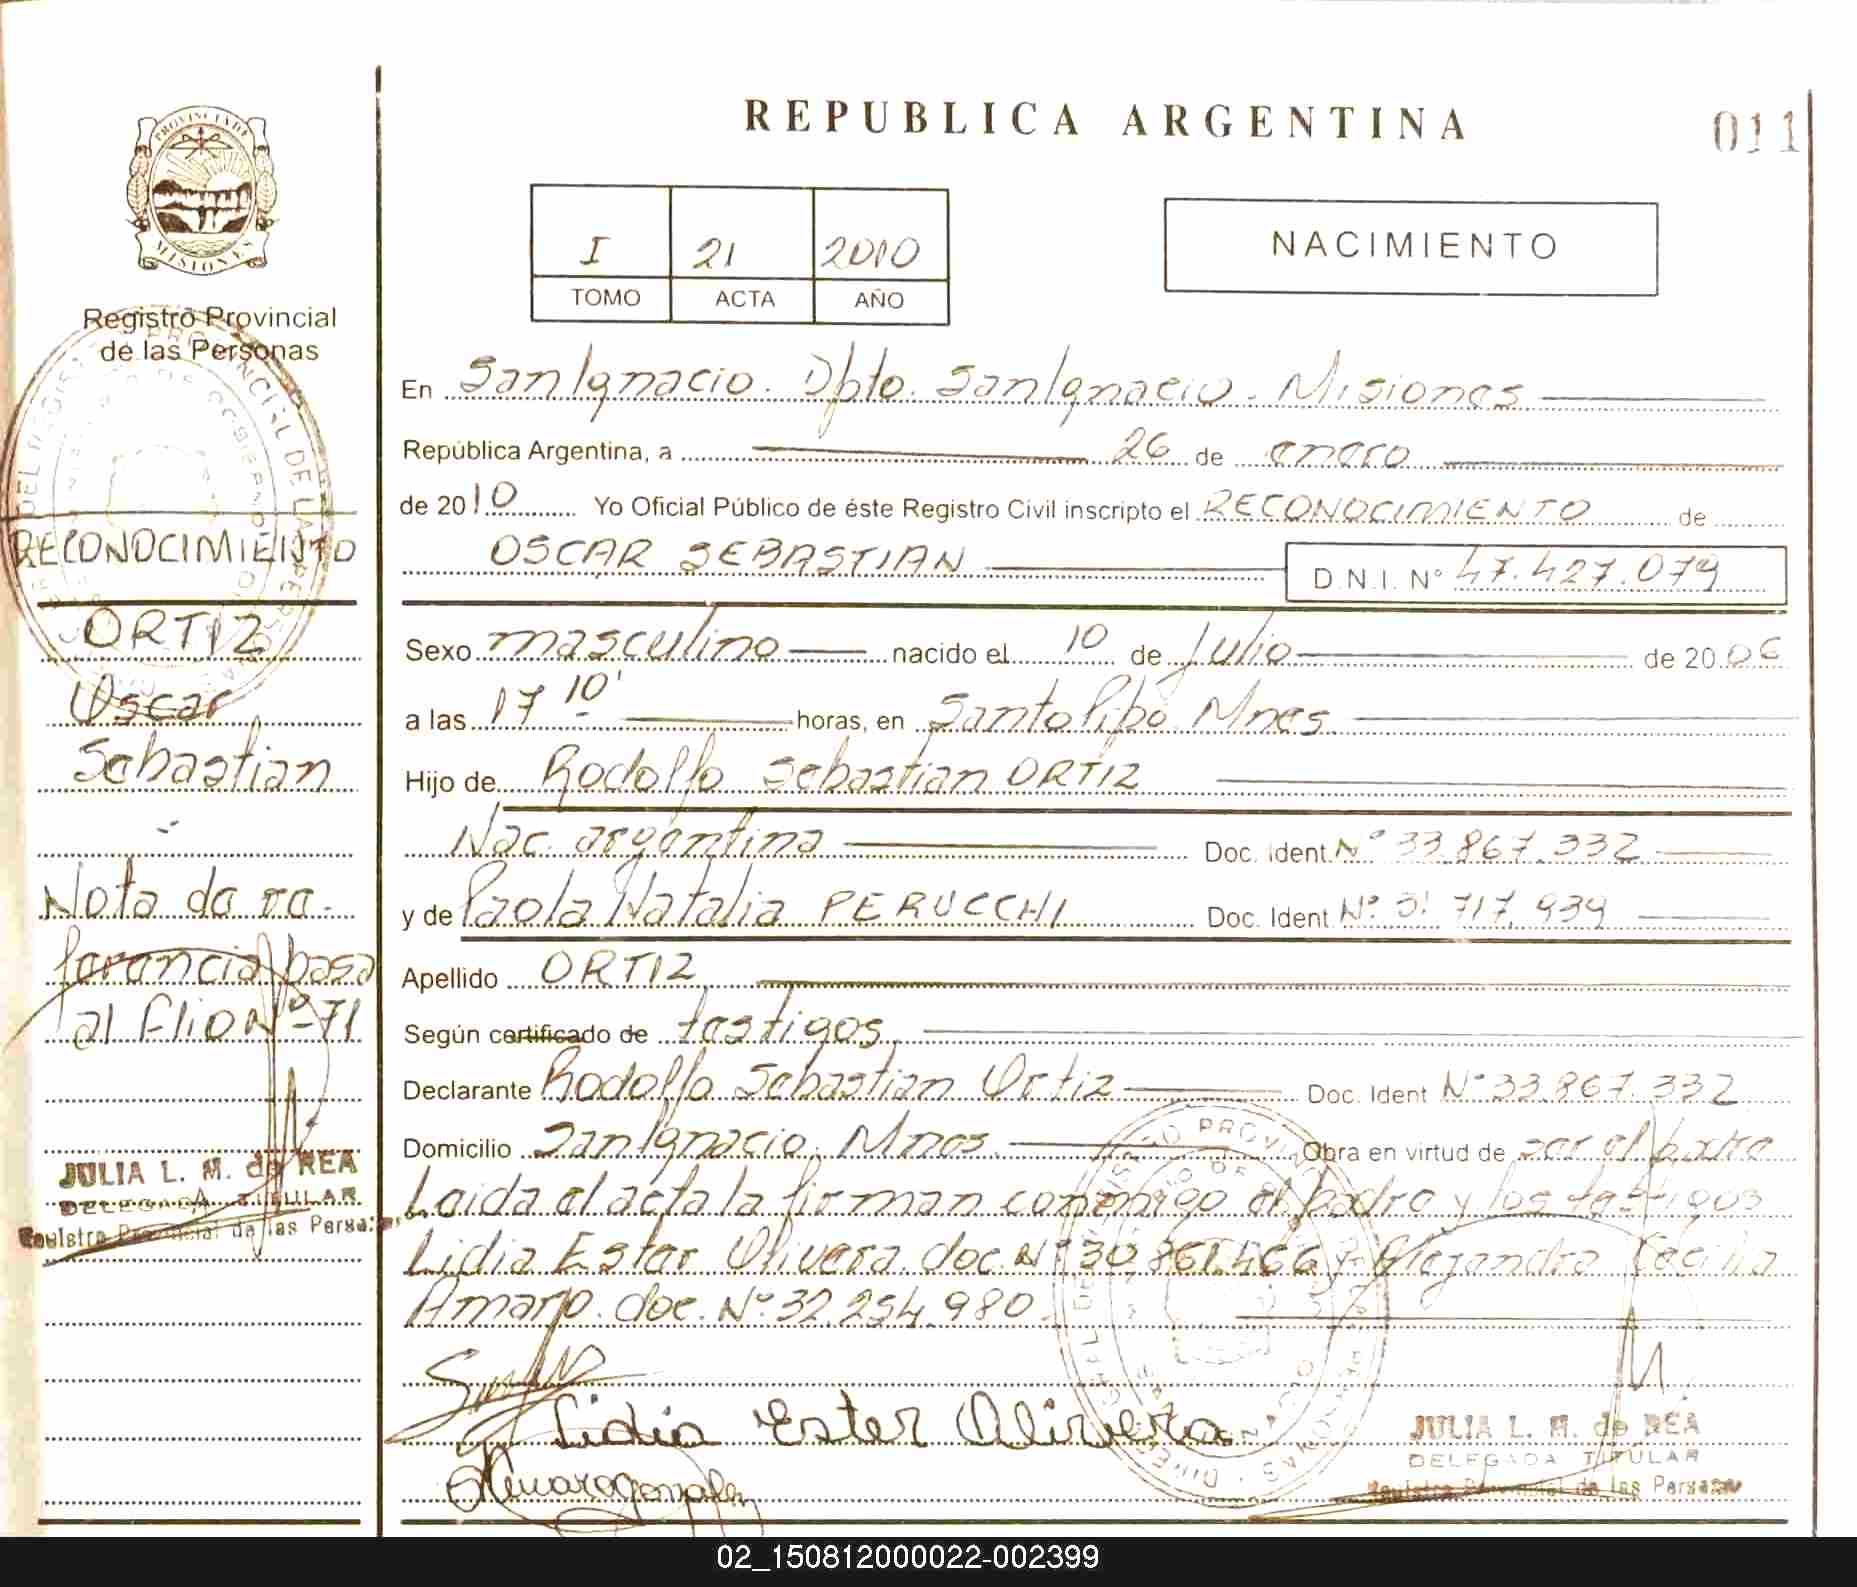 REPUBLICA ARGENTINA
011
PROVINCIA DE
MISIONES
Registro Provincial
de las Personas
I 21 2010
TOMO ACTA AÑO
NACIMIENTO
En San Ignacio. Dpto. San Ignacio. Misiones
República Argentina, a 26 de enero
de 2010 Yo Oficial Público de éste Registro Civil inscripto el RECONOCIMIENTO de
OSCAR SEBASTIAN D.N.I. Nº 47.427.079
Sexo masculino nacido el 10 de Julio de 2006
a las 17 10' horas, en Santo Pipó Mnes.
Hijo de Rodolfo Sebastian ORTIZ
Nac. argentina Doc. Ident. Nº 33.867.332
y de Paola Natalia PERUCCHI Doc. Ident Nº 31.717.939
Apellido ORTIZ
Según certificado de testigos
Declarante Rodolfo Sebastian Ortiz Doc. Ident Nº 33.867.332
Domicilio San Ignacio. Mnes. Obra en virtud de ser el padre
Leida el acta la firman conmigo el padre y los testigos
Lidia Ester Olivera doc. Nº 30.861.466 y Alejandra Cecilia
Amaro. doc. Nº 32.254.980
Lidia Ester Olivera
JULIA L. M. de REA
DELEGADA TITULAR
Registro Provincial de las Personas
RECONOCIMIENTO
ORTIZ
Oscar
Sebastian
Nota de re-
ferencia pasa
al folio Nº 71
JULIA L. M. de REA
DELEGADA TITULAR
Registro Provincial de las Persa
02_150812000022-002399